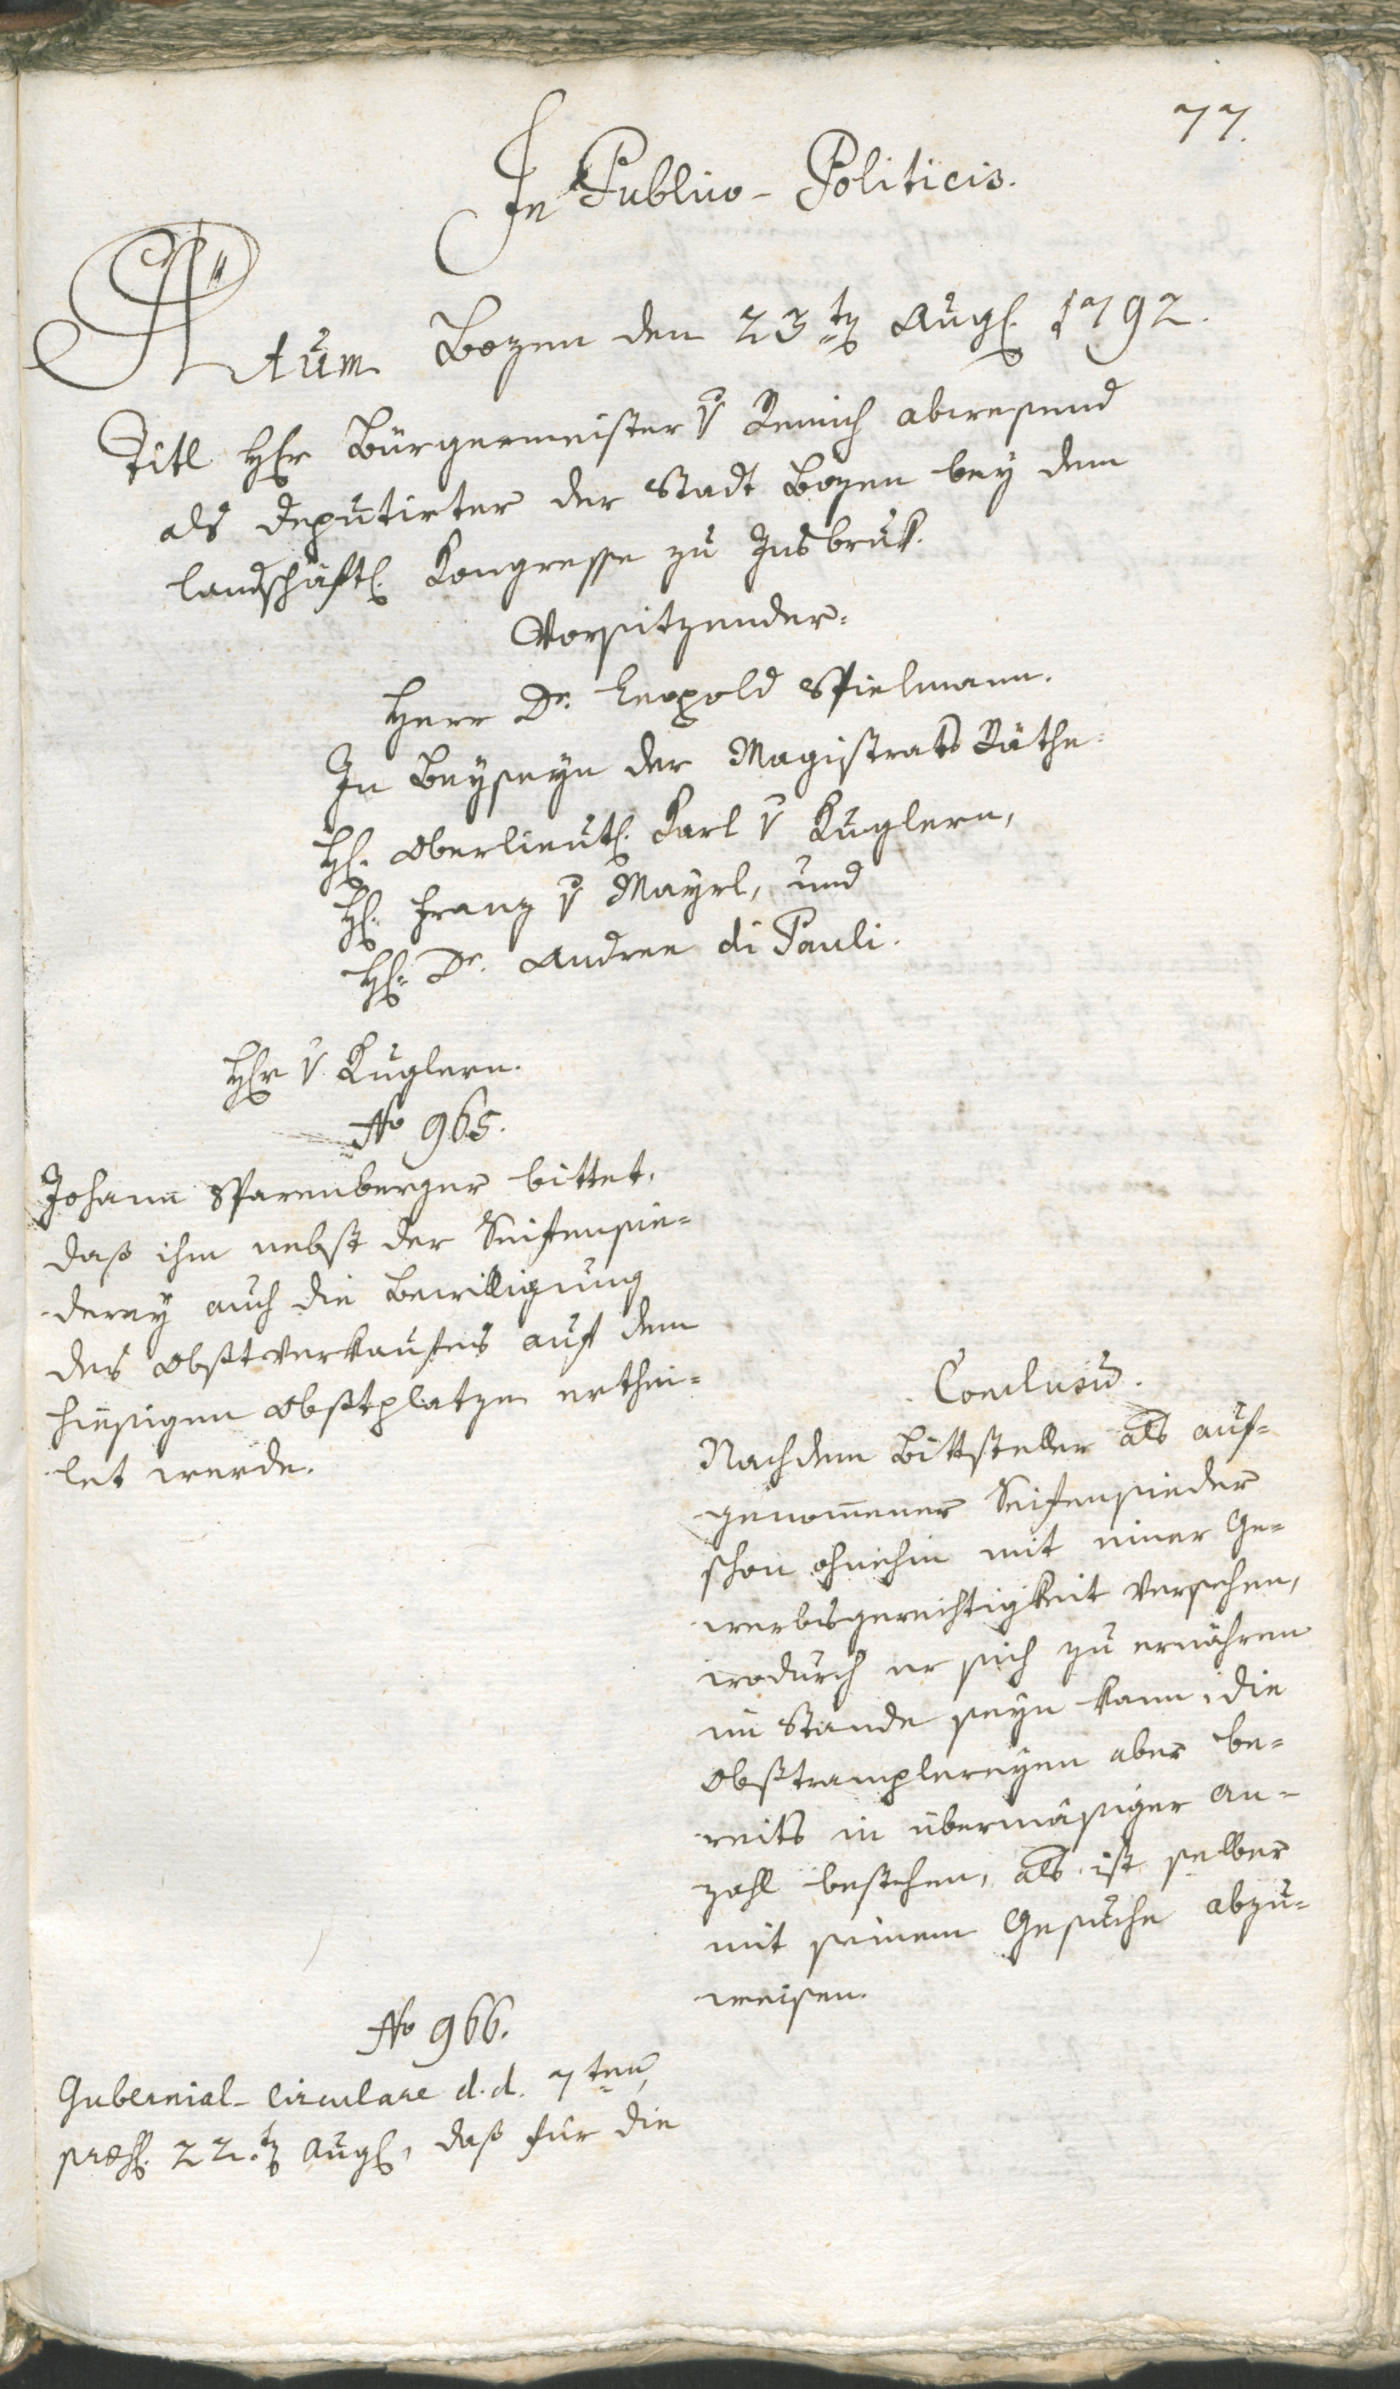 77.
In Publico-Politicis.
Actum Bozen den 23:ten Aug. 1792.
Titl Herr Bürgermeister v Remich abwesend
als Deputirter der Stadt Bozen bey dem
landschäftl. Kongresse zu Insbruk.
Vorsitzender:
Herr Dr. Leopold Spielmann.
In Beyseyn der Magistrats Räthe:
H. Oberlieut. Karl v Kuglern,
H. Franz v Mayrl, und
H. Dr. Andree di Pauli.
Herr v. Kuglern.
No 965.
Johann Sparnberger bittet,
daß ihm nebst der Seifensie=
derey auch die Bewilligung
des Obstverkaufens auf dem
hiesigen Obstplatze erthei=
let werde.
Conclusum.
Nachdem Bittsteller als auf=
genommener Seifensieder
schon ohnehin mit einer Ge=
werbsgerechtigkeit versehen,
wodurch er sich zu ernähren
im Stande seyn kann, die
Obstramplereyen aber be=
reits in übermäsiger An=
zahl bestehen, als ist selber
mit seinem Gesuche abzu=
weisen.
No 966.
Gubernial-Circulare d. d. 7ten,
præs. 22.ten Aug., daß für die